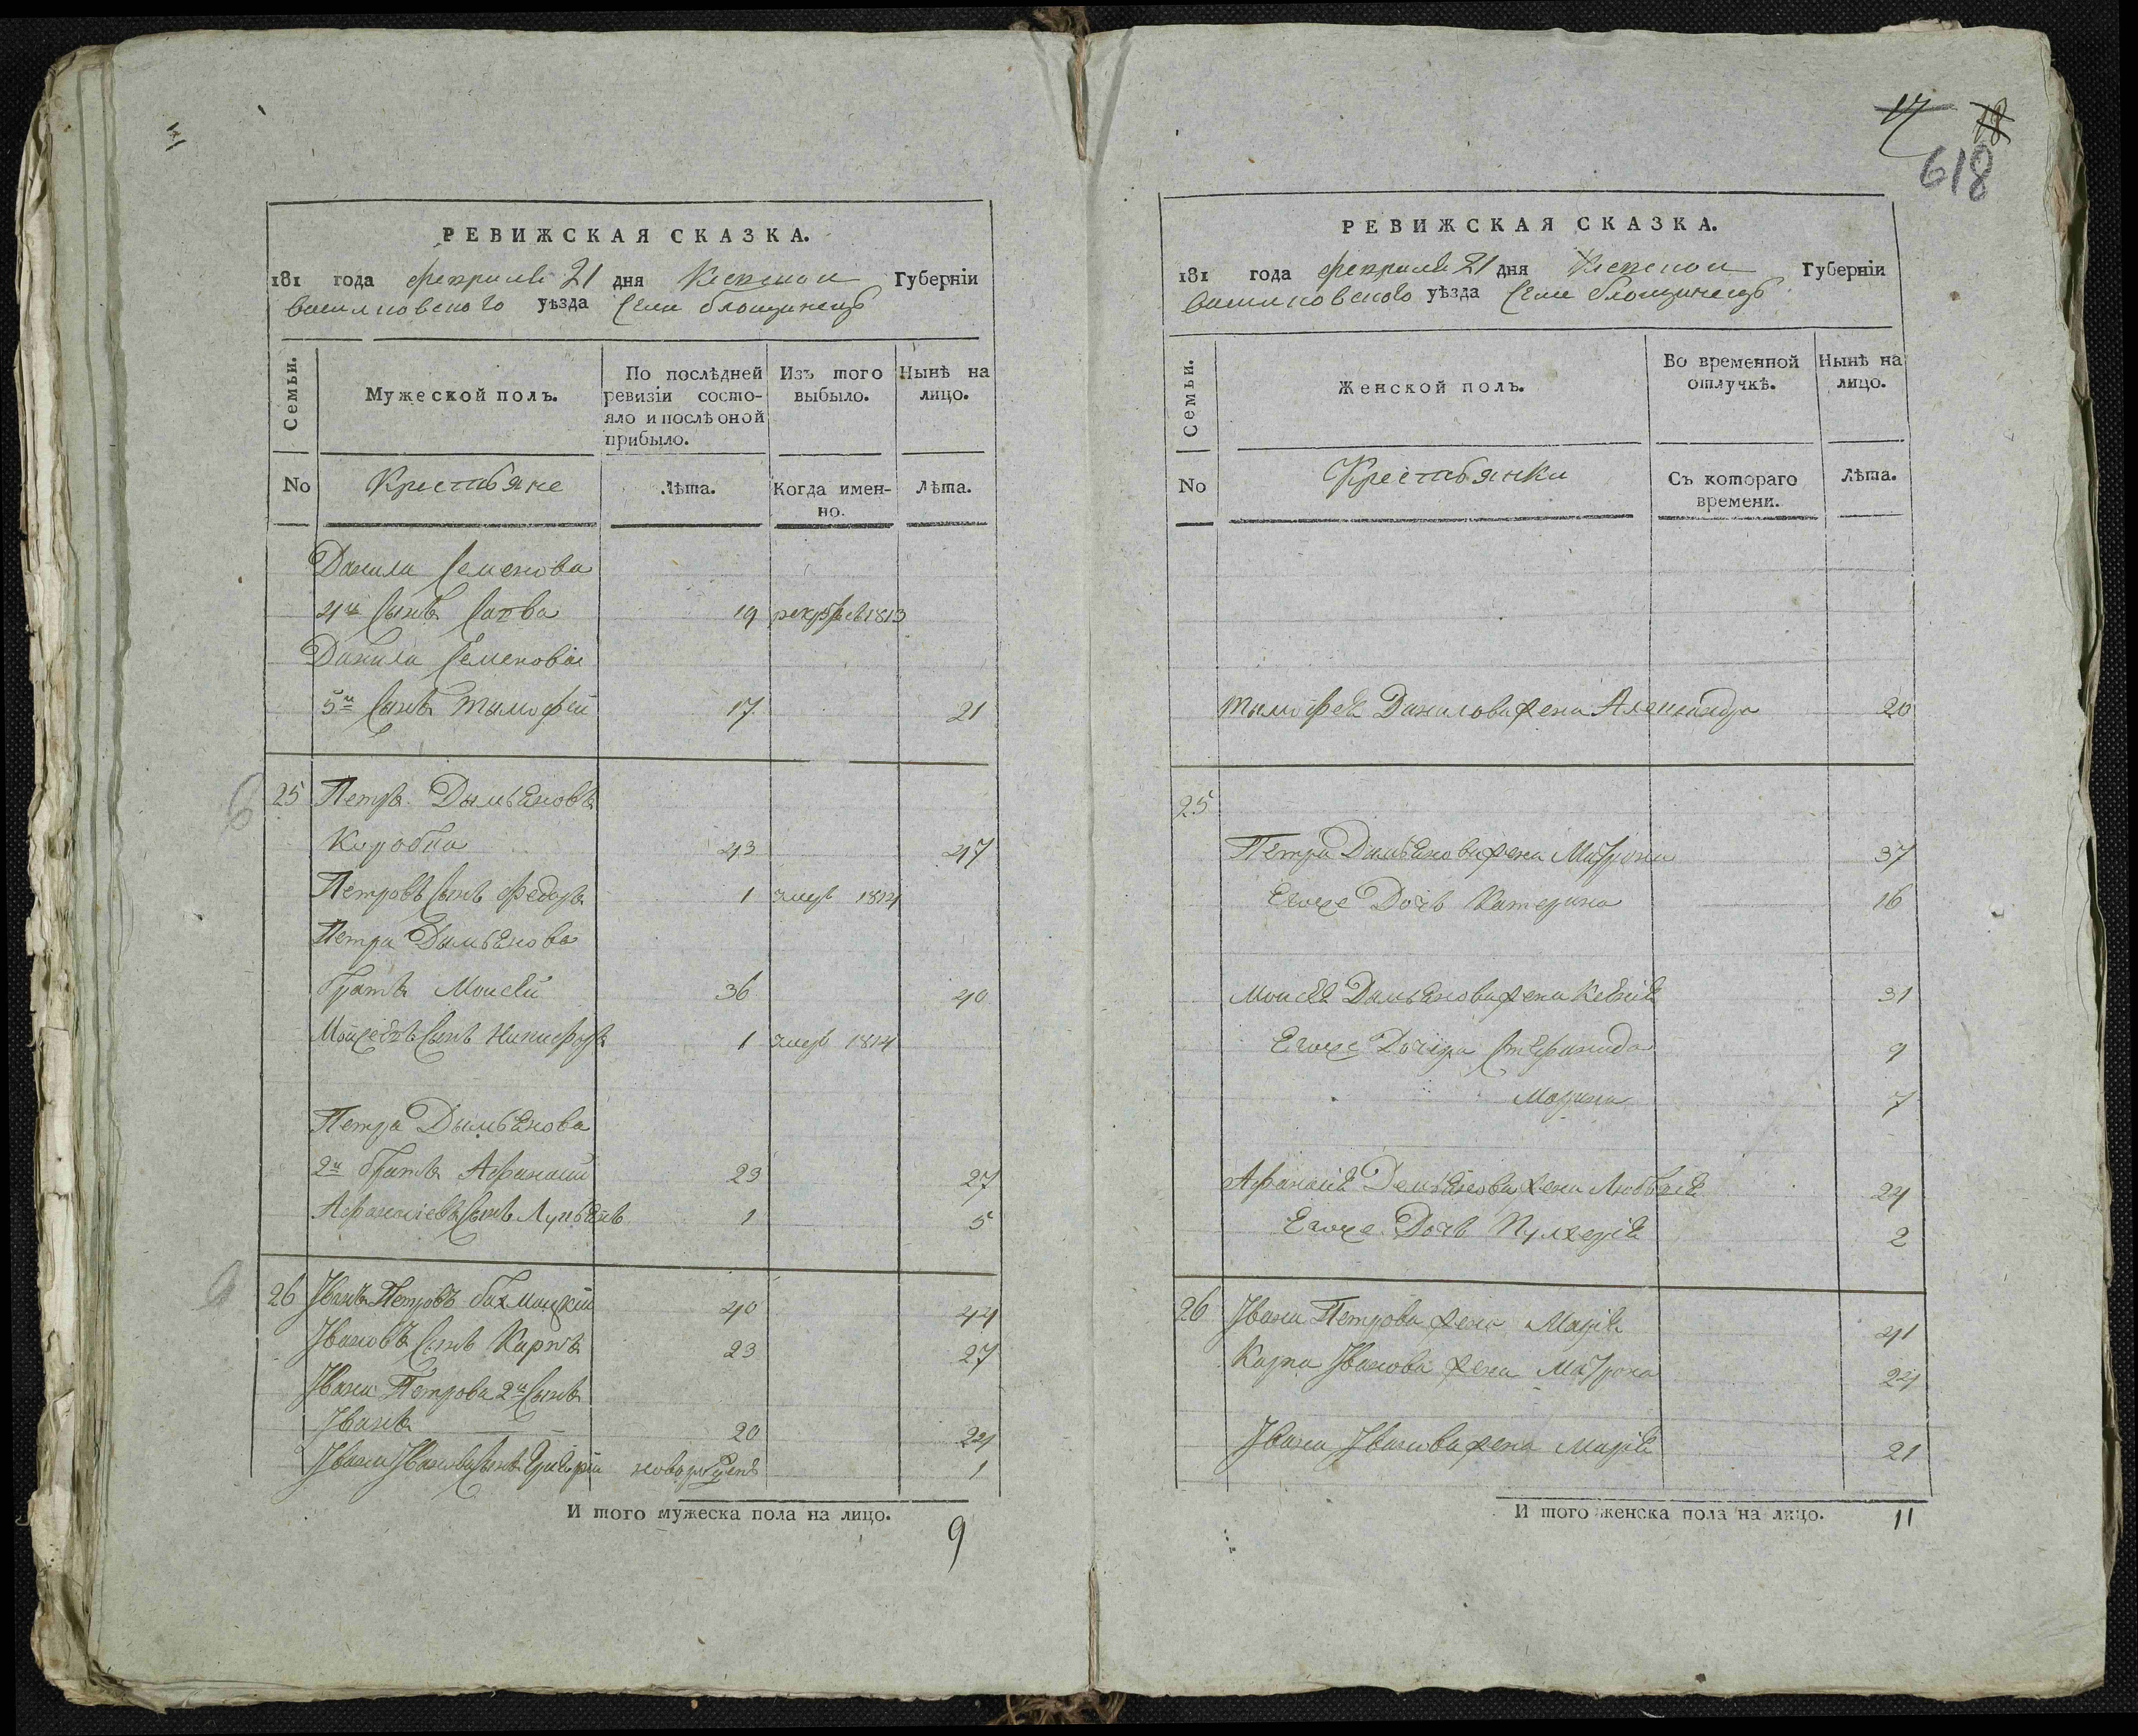 РЕВИЖСКАЯ СКАЗКА.
181 года февраля 21 дня Киевской Губерніи
васильковского уѣзда села блощинецъ
Семьи.
Мужеской полъ.
По послѣдней ревизіи состо-
яло и послѣ оной
прибыло.
Изъ того
выбыло.
Нынѣ на
лицо.
No
Крестьяне
Лѣта.
Когда имен-
но.
Лѣта.
Данила Семенова
4й Сынъ Савва 19 рекрутъ 1813
Данила Семенова
5й Сынъ Тимофей 17 21
25 Петръ Дымьяновъ
Коробка 43 47
Петровъ Сынъ Федоръ 1 умеръ 1814
Петра Дымьянова
братъ Моисей 36 40
Моисеевъ Сынъ Никифоръ 1 умеръ 1814
Петра Дымьянова
2й братъ Афанасий 23 27
Афанасіевъ Сынъ Лукьянъ 1 5
26 Иванъ Петровъ бахмацкий 40 44
Ивановъ Сынъ Карпъ 23 27
Ивана Петрова 2й Сынъ
Иванъ 20 24
Ивана Иванова Сынъ Григорій новорожденъ 1
И того мужеска пола на лицо. 9
17 18
618
РЕВИЖСКАЯ СКАЗКА.
181 года февраля 21 дня Киевской Губерніи
васильковского уѣзда села блощинецъ
Семьи.
Женской полъ.
Во временной
отлучкѣ.
Нынѣ на
лицо.
No
Крестьянки
Съ котораго
времени.
Лѣта.
Тимофея Данилова жена Александра 20
25
Петра Дымьянова жена Матрона 37
Егоже Дочь Катерина 16
Моисея Дымьянова жена Ксенія 31
Егоже Дочери Стефанида 9
Марина 7
Афанасія Демьянова жена 24
Егоже Дочь Пулхерія 2
26 Ивана Петрова жена Марія 41
Карпа Иванова жена Матрона 24
Ивана Иванова жена Марія 21
И того женска пола на лицо. 11